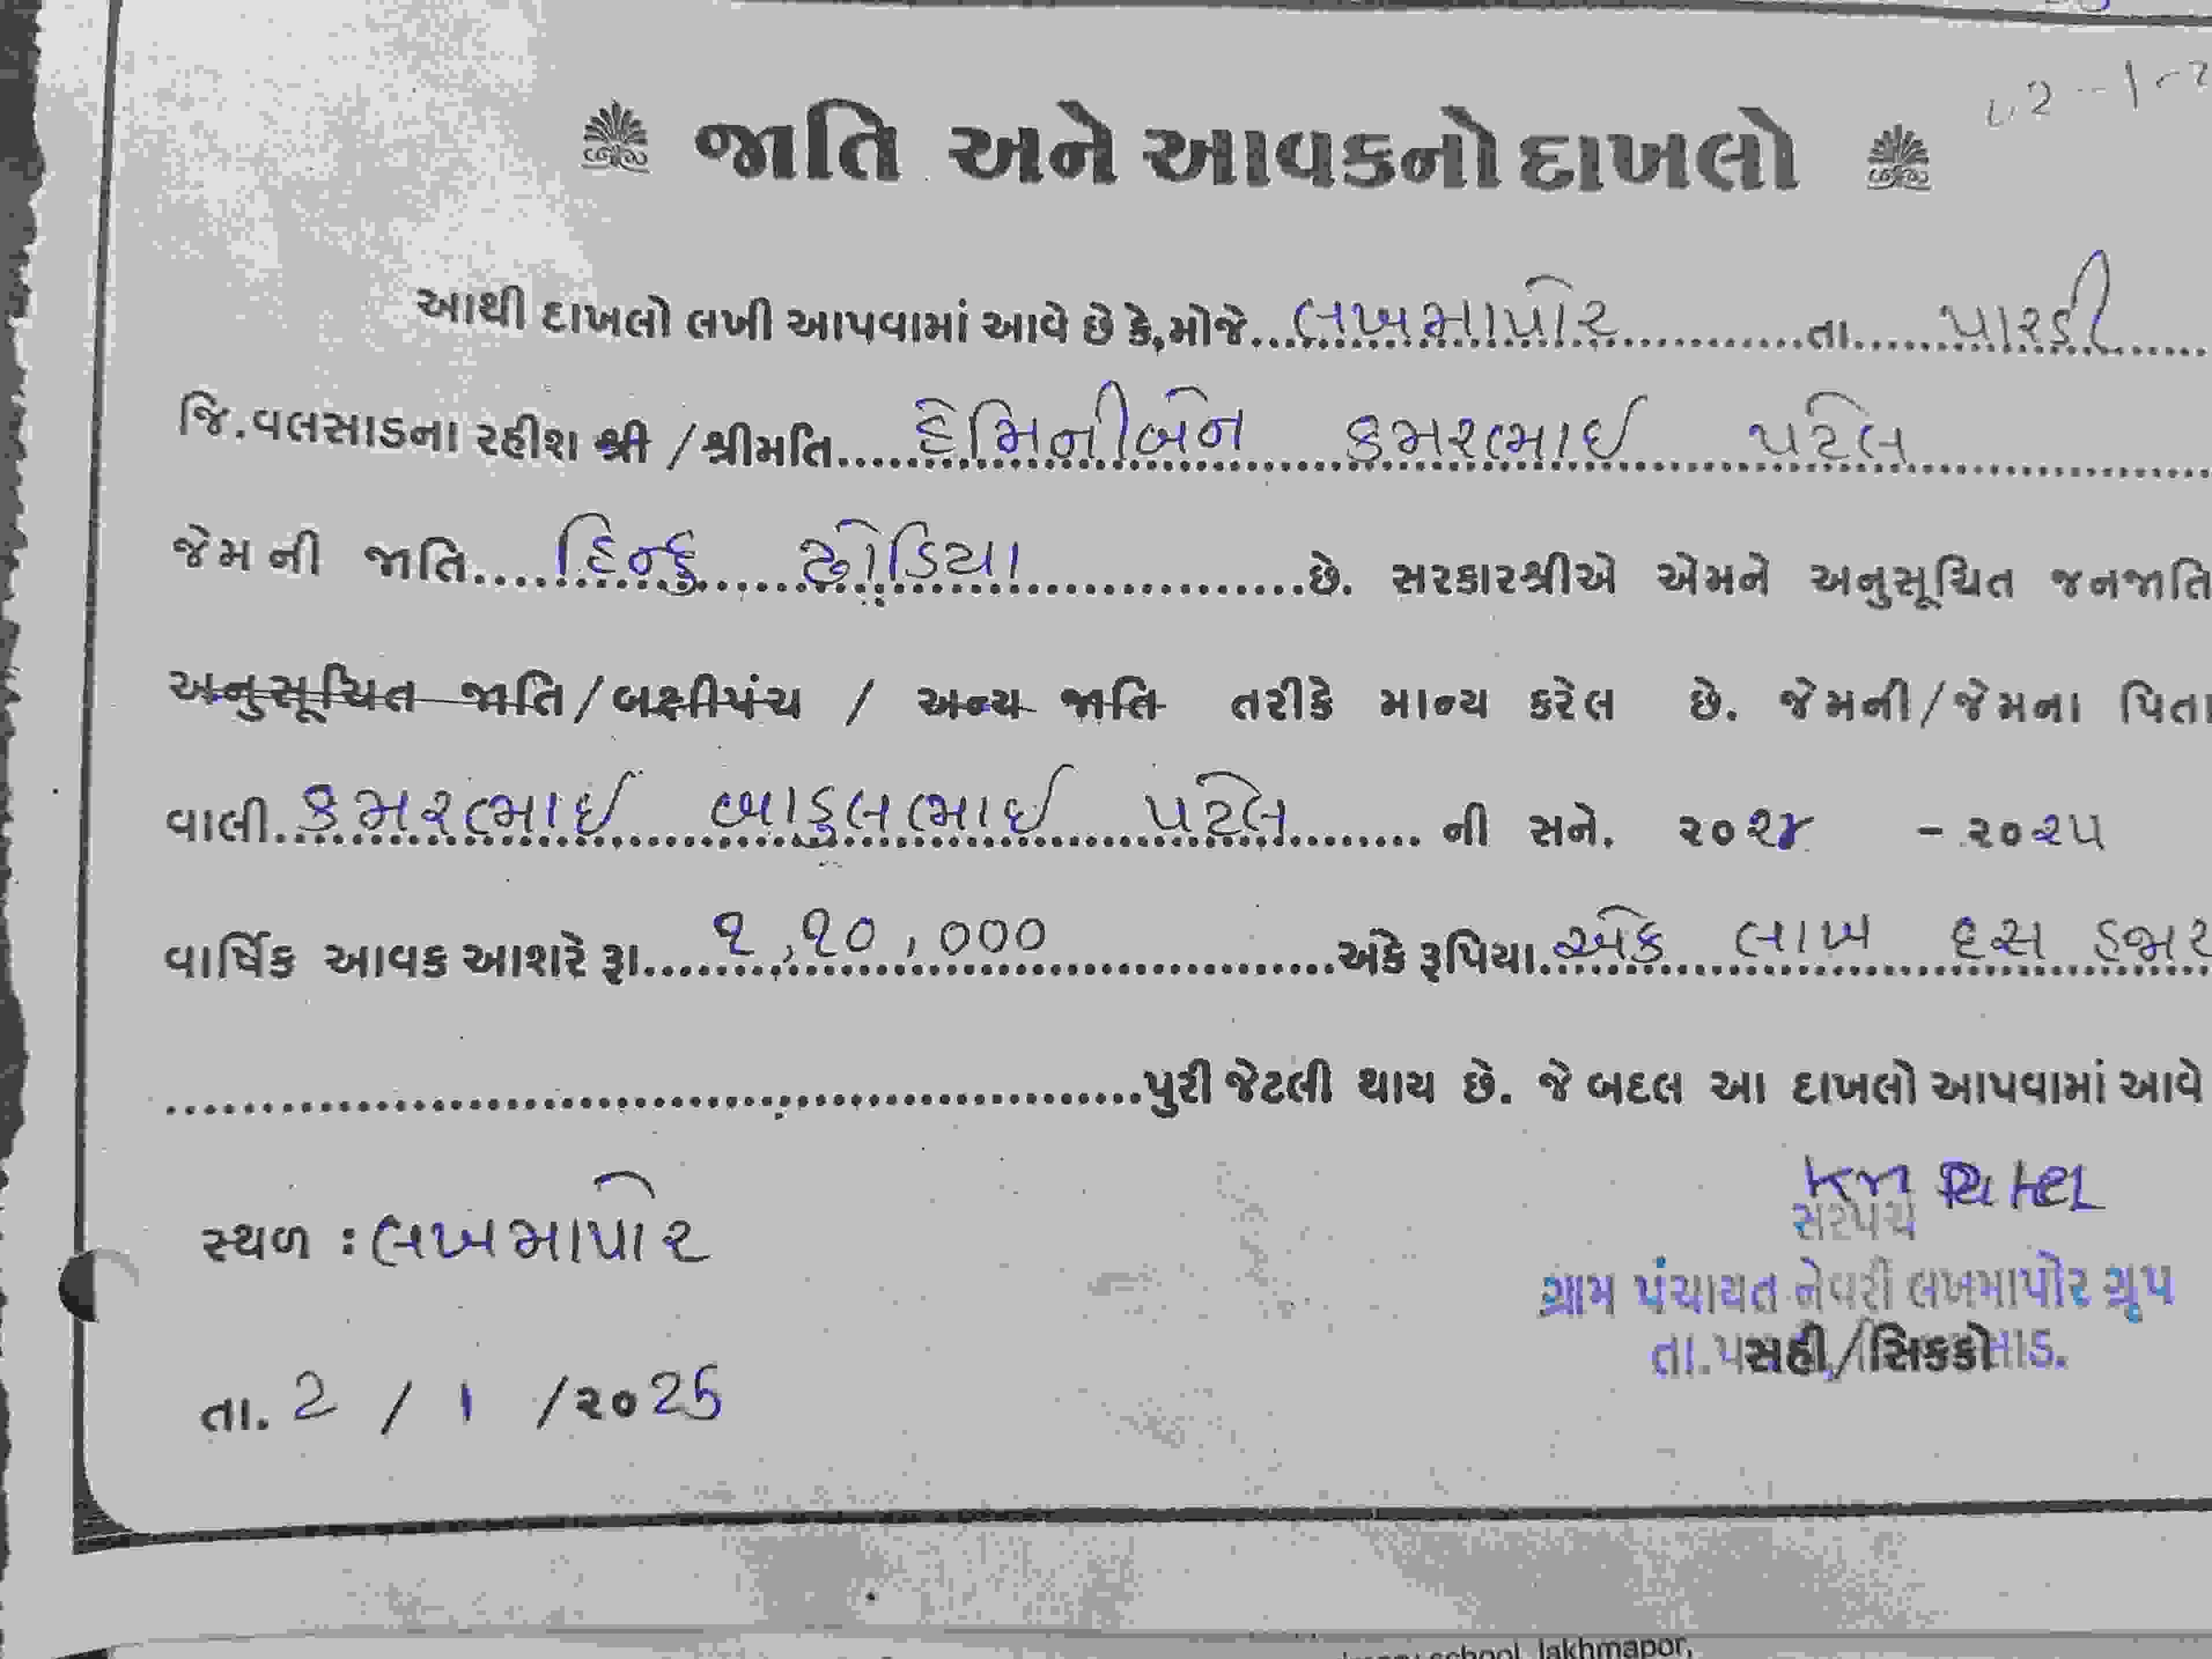 જાતિ અને આવકનો દાખલો
આથી દાખલો લખી આપવામાં આવે છે કે, મોજે લખમાપોર તા. પારડી
જિ.વલસાડના રહીશ શ્રી / શ્રીમતિ હેમિનીબેન કમરભાઈ પટેલ
જેમની જાતિ હિન્દુ ઢોડિયા છે. સરકારશ્રીએ એમને અનુસૂચિત જનજાતિ
અનુસૂચિત જાતિ / બક્ષીપંચ / અન્ય જાતિ તરીકે માન્ય કરેલ છે. જેમની/જેમના પિતા
વાલી. કમરભાઈ બાડુલભાઈ પટેલ ની સને. ૨૦૨૪ - ૨૦૨૫
વાર્ષિક આવક આશરે રૂા. ૧,૧૦,૦૦૦ અંકે રૂપિયા એક લાખ દસ હજાર
પુરી જેટલી થાય છે. જે બદલ આ દાખલો આપવામાં આવે
KM Patel
સરપંચ
સ્થળ : લખમાપોર
ગ્રામ પંચાયત નેવરી લખમાપોર ગ્રૂપ
સહી/સિકકો
તા. 2 / 1 / ૨૦25
school, lakhmapor,